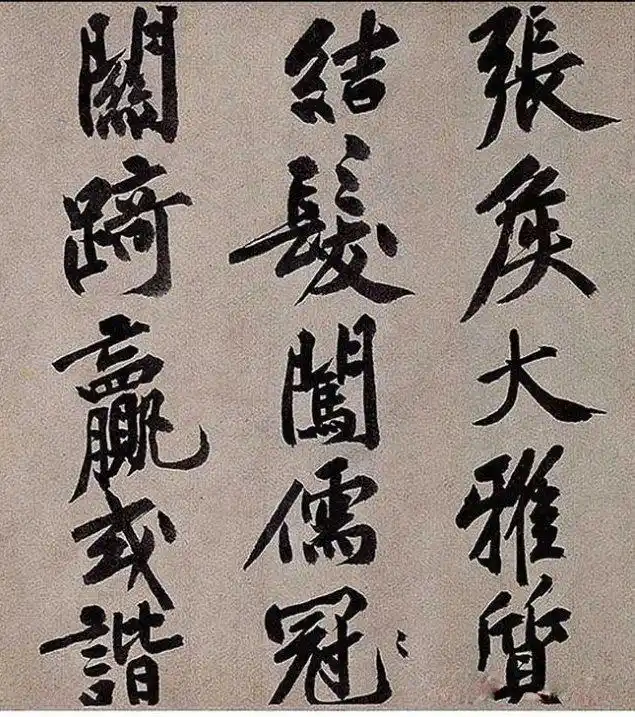 張矦大雅質
結髮闖儒冠
關踦贏或諧